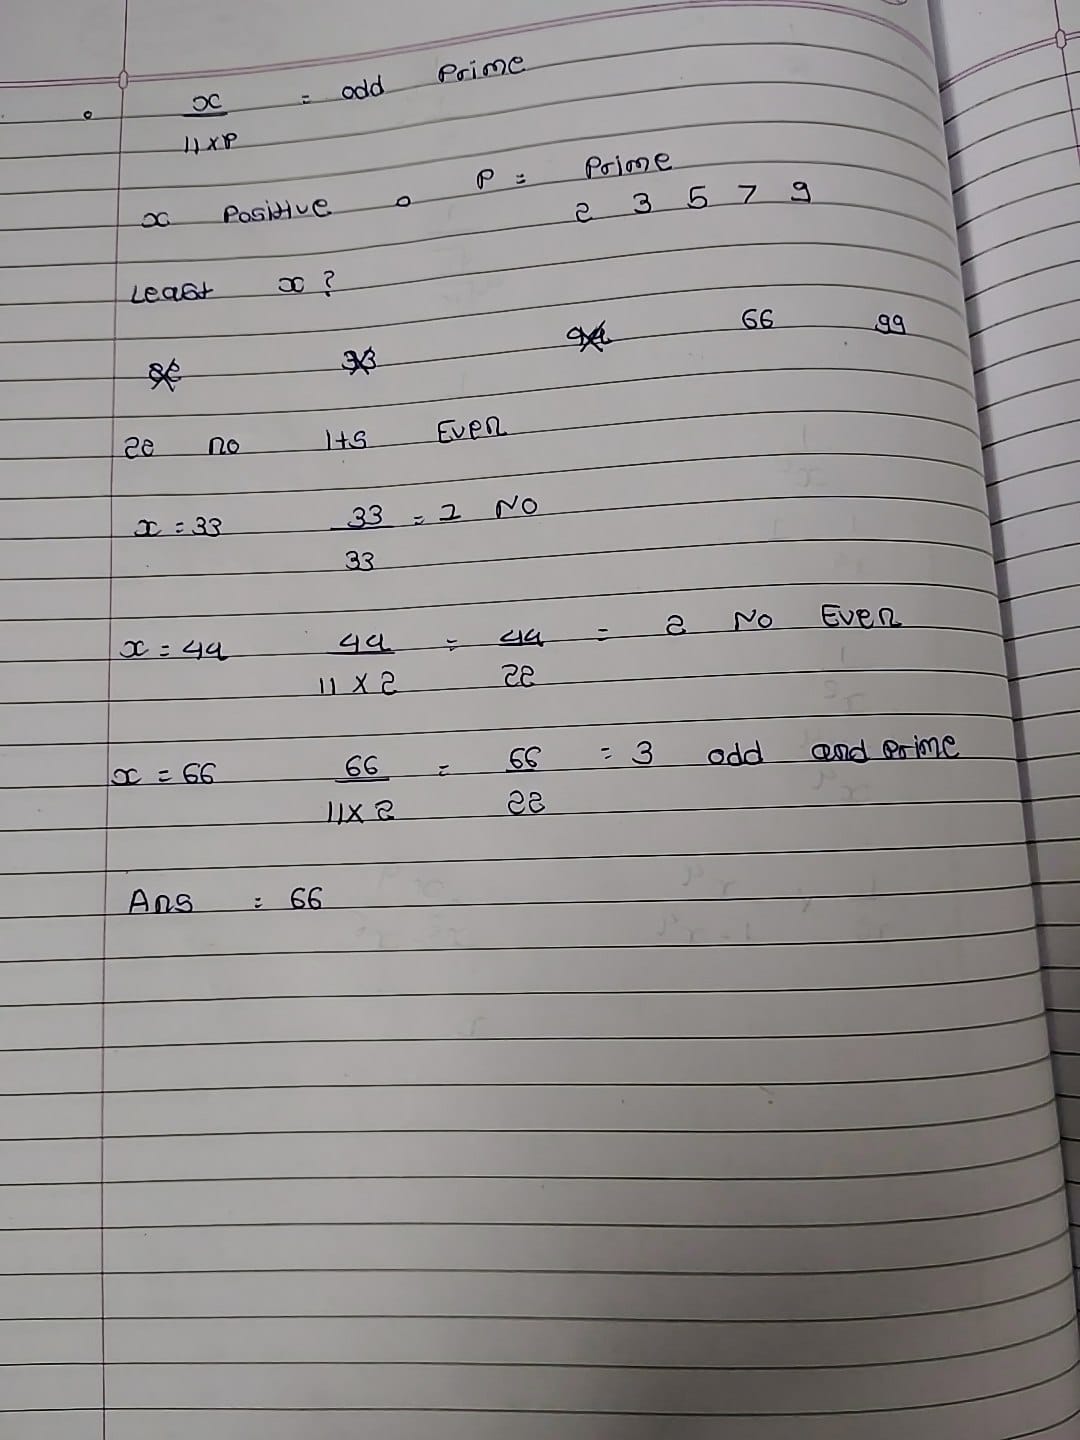 x / 11×P = odd Prime
x Positive o P = Prime
2 3 5 7 9
Least x ?
33 44 66 99
22 no Its Even
x = 33 33 / 33 = 1 No
x = 44 44 / 11 × 2 = 44 / 22 = 2 No Even
x = 66 66 / 11× 2 = 66 / 22 = 3 odd and Prime
Ans = 66